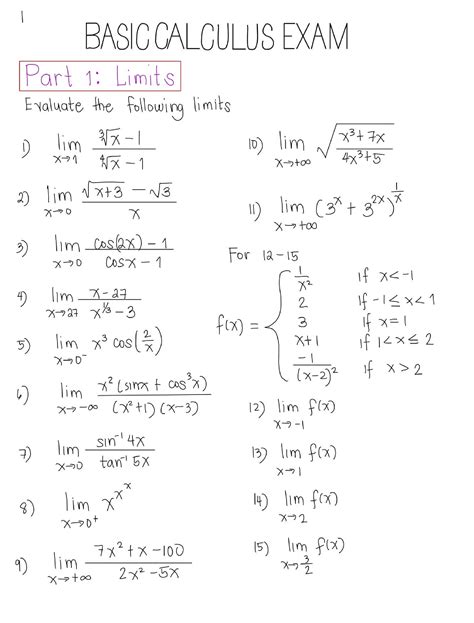 1
BASIC CALCULUS EXAM
Part 1: Limits
Evaluate the following limits
1) lim x→1 (∛x − 1)/(∜x − 1)
2) lim x→0 (√(x+3) − √3)/x
3) lim x→0 (cos(2x) − 1)/(cosx − 1)
4) lim x→27 (x − 27)/(x^(1/3) − 3)
5) lim x→0⁻ x³ cos(2/x)
6) lim x→−∞ (x²(sinx + cos³x))/((x²+1)(x−3))
7) lim x→0 (sin⁻¹ 4x)/(tan⁻¹ 5x)
8) lim x→0⁺ x^(x^x)
9) lim x→+∞ (7x² + x − 100)/(2x² − 5x)
10) lim x→+∞ √((x³ + 7x)/(4x³ + 5))
11) lim x→+∞ (3^x + 3^(2x))^(1/x)
For 12 − 15
f(x) = {
1/x² if x < −1
2 if −1 ≤ x < 1
3 if x = 1
x+1 if 1 < x ≤ 2
−1/(x−2)² if x > 2
12) lim x→−1 f(x)
13) lim x→1 f(x)
14) lim x→2 f(x)
15) lim x→3/2 f(x)